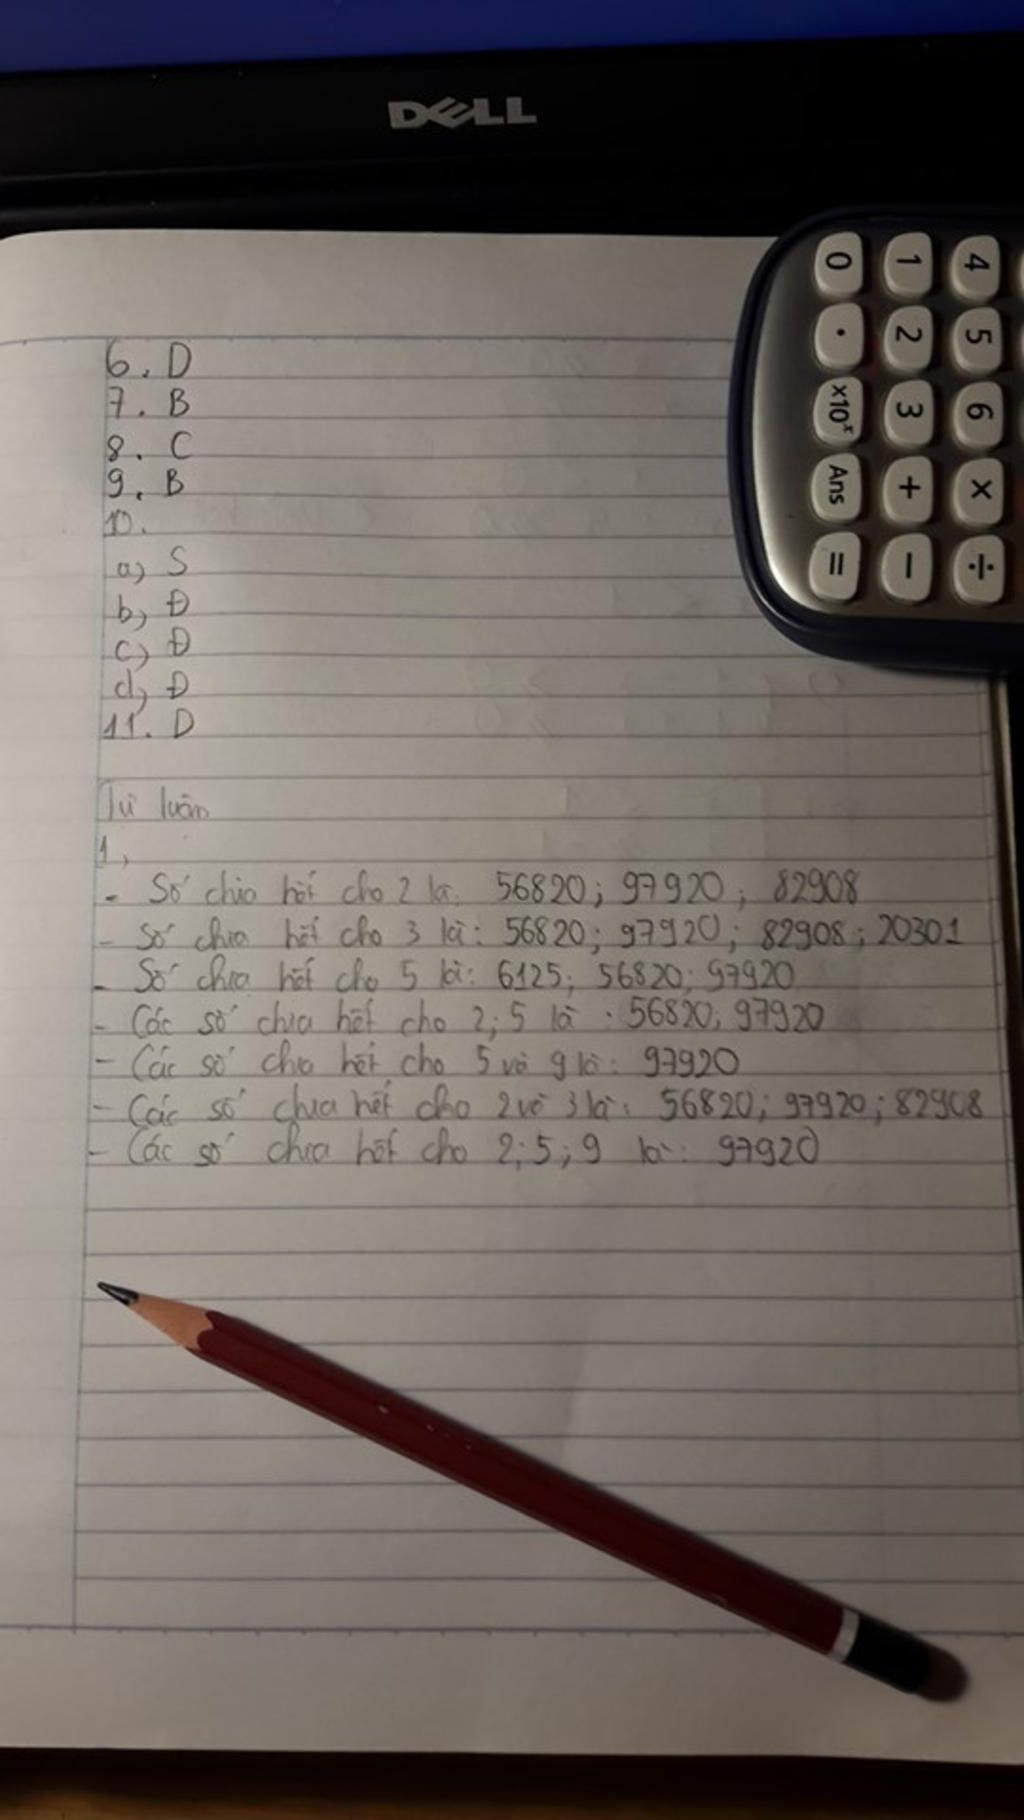 DELL
0 1 4
. 2 5
x10ˣ 3 6
Ans + ×
= − ÷
6. D
7. B
8. C
9. B
10.
a) S
b) Đ
c) Đ
d) Đ
11. D
Tự luận
1,
- Số chia hết cho 2 là: 56820; 97920; 82908
- Số chia hết cho 3 là: 56820; 97920; 82908; 20301
- Số chia hết cho 5 là: 6125; 56820; 97920
- Các số chia hết cho 2; 5 là : 56820; 97920
- Các số chia hết cho 5 và 9 là: 97920
- Các số chia hết cho 2 và 3 là: 56820; 97920; 82908
- Các số chia hết cho 2; 5; 9 là: 97920